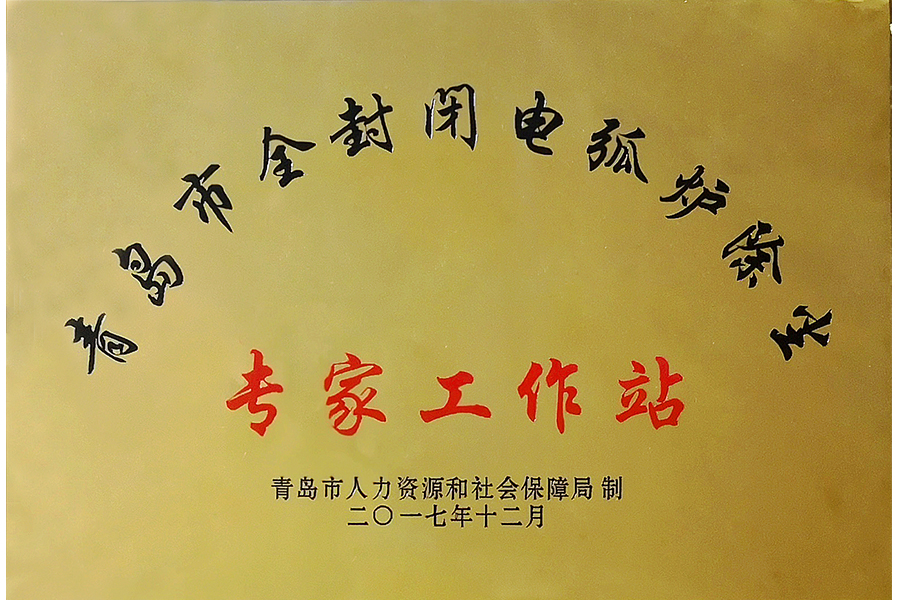 青岛市全封闭电弧炉
专家工作站
青岛市人力资源和社会保障局 制
二〇一七年十二月